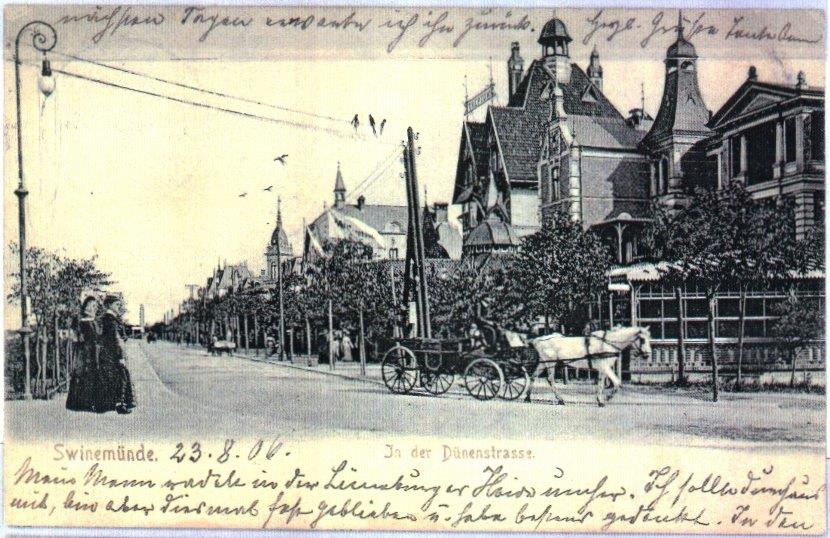 nächsten Tagen erwarte ich ihn zurück. Herzl. Grüße Tante Ann
Swinemünde. 23.8.06. In der Dünenstrasse.
Mein Mann radelt in der Lüneburger Heide umher. Ich sollte durchaus
mit, bin aber diesmal fest geblieben u. habe bestens gedankt. In den